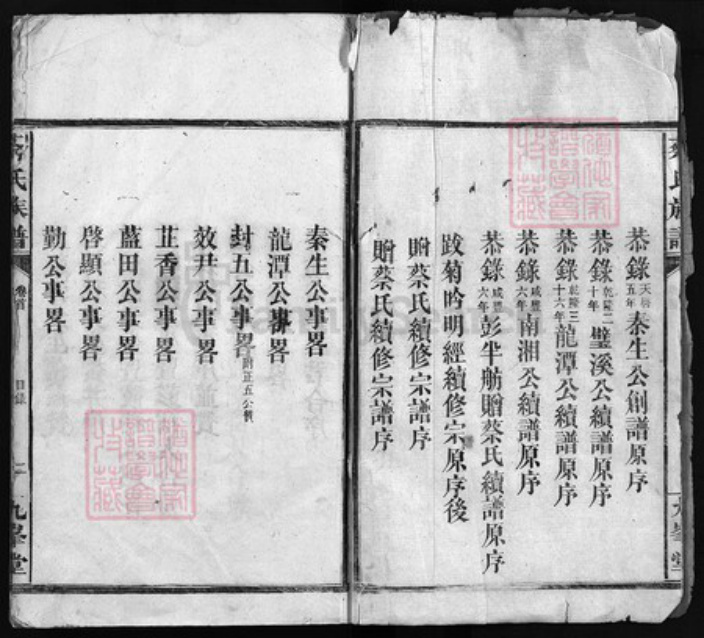 蔡氏族譜
九峯堂
恭錄天啓五年秦生公創譜原序
恭錄乾隆二十年璧溪公續譜原序
恭錄乾隆三十六年龍潭公續譜原序
恭錄咸豐六年南湘公續譜原序
恭錄咸豐六年彭半舫贈蔡氏續譜原序
跋菊吟明經續修宗原序後
贈蔡氏續修宗譜序
贈蔡氏續修宗譜序
秦生公事畧
龍潭公事畧
封五公事畧附正五公
效尹公事畧
芷香公事畧
藍田公事畧
啓顯公事畧
勤公事畧
蔡氏族譜 卷首 目錄 二 九峯堂